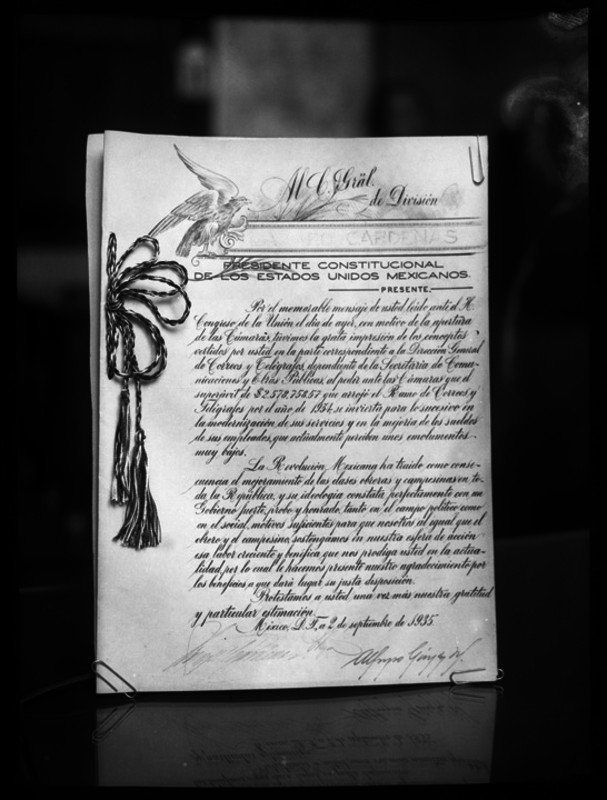 Al C. Gräl.
de División
CÁRDENAS
PRESIDENTE CONSTITUCIONAL
DE LOS ESTADOS UNIDOS MEXICANOS.
PRESENTE.
Por el memorable mensaje de usted leido ante el H.
Congreso de la Unión el día de ayer, con motivo de la apertura
de las Cámaras, tuvimos la grata impresión de los conceptos
vertidos por usted en la parte correspondiente a la Dirección General
de Correos y Telégrafos, dependiente de la Secretaría de Comu-
nicaciones y Obras Públicas, al pedir ante las Cámaras que el
superávit de $2.578,758.57 que arrojó el Ramo de Correos y
Telégrafos por el año de 1934, se invierta para lo sucesivo en
la modernización de sus servicios y en la mejoría de los sueldos
de sus empleados, que actualmente perciben unos emolumentos
muy bajos.
La Revolución Mexicana ha traido como conse-
cuencia el mejoramiento de las clases obreras y campesinas en to-
da la República, y su ideología constituye perfectamente con un
Gobierno fuerte, probo y honrado, tanto en el campo político como
en el social, motivos suficientes para que nosotros al igual que el
obrero y el campesino, sostengamos en nuestra esfera de acción
esa labor creciente y benéfica que nos prodiga usted en la actua-
lidad, por lo cual le hacemos presente nuestro agradecimiento por
los beneficios a que dará lugar su justa disposición.
Protestamos a usted una vez más nuestra gratitud
y particular estimación.
México, D. F., a 2 de septiembre de 1935